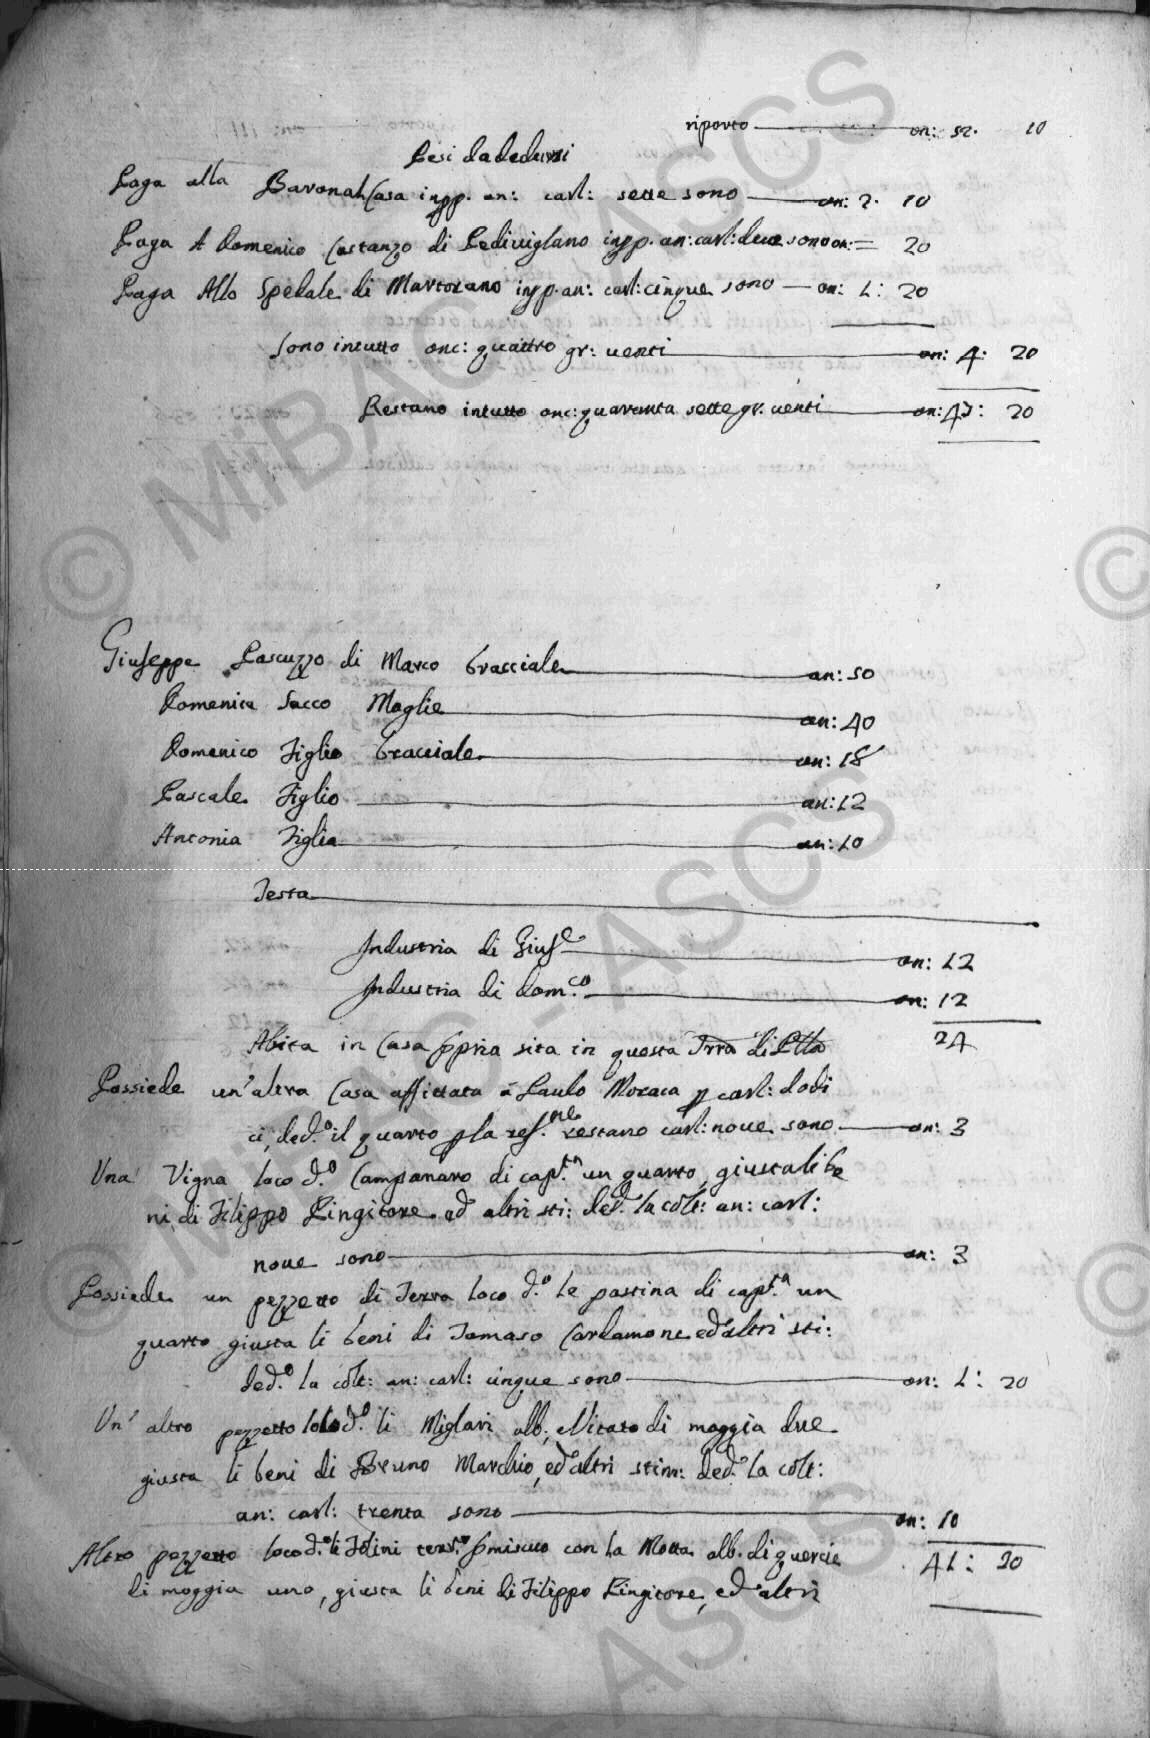 riporto on: 52. 10
Pesi da dedursi
Paga alla Baronal Casa inpp. an: carl: sette sono on: 2. 10
Paga A Domenico Costanzo di Pedivigliano inpp. an: carl: due sono on: = 20
Paga Allo Spedale di Martorano inpp. an: carl: cinque sono on: 1: 20
Sono intutto onc: quattro gr: venti on: 4: 20
Restano intutto onc: quaranta sette gr. venti on: 47: 20
Giuseppe Pascuzzo di Marco bracciale an: 50
Domenica Sacco Moglie an: 40
Domenico Figlio bracciale an: 18
Pascale Figlio an: 12
Antonia Figlia an: 10
Testa
Industria di Giuse on: 12
Industria di dom.co on: 12
24
Abita in Casa ppria sita in questa Trra di
Possiede un'altra Casa affittata á Paulo Moraca p carl: dodi
ci, ded.o il quarto p la ref.ne restano carl: nove sono on: 3
Una Vigna loco d.o Campanaro di cap.tà un quarto, giusta li be
ni di Filippo Pingitore ed altri sti: ded. la colt: an: carl:
nove sono on: 3
Possiede un pezzetto di Terra loco d.o le pastina di cap.tà un
quarto giusta li beni di Tomaso Cardamone ed altri sti:
ded.o la colt: an: carl: cinque sono on: 1: 20
Un' altro pezzetto loco d.o li Migliari alb. e Vitato di moggia due
giusta li beni di Bruno Marchio, ed altri stim: ded. la colt:
an: carl: trenta sono on: 10
Altro pezzetto loco d.o li pmiscuo con la Motta alb. di quercie 41: 20
di moggia uno, giusta li beni di Filippo Pingitore, ed altri
© MiBAC - ASCS
© MiBAC - ASCS
©
©
ASCS